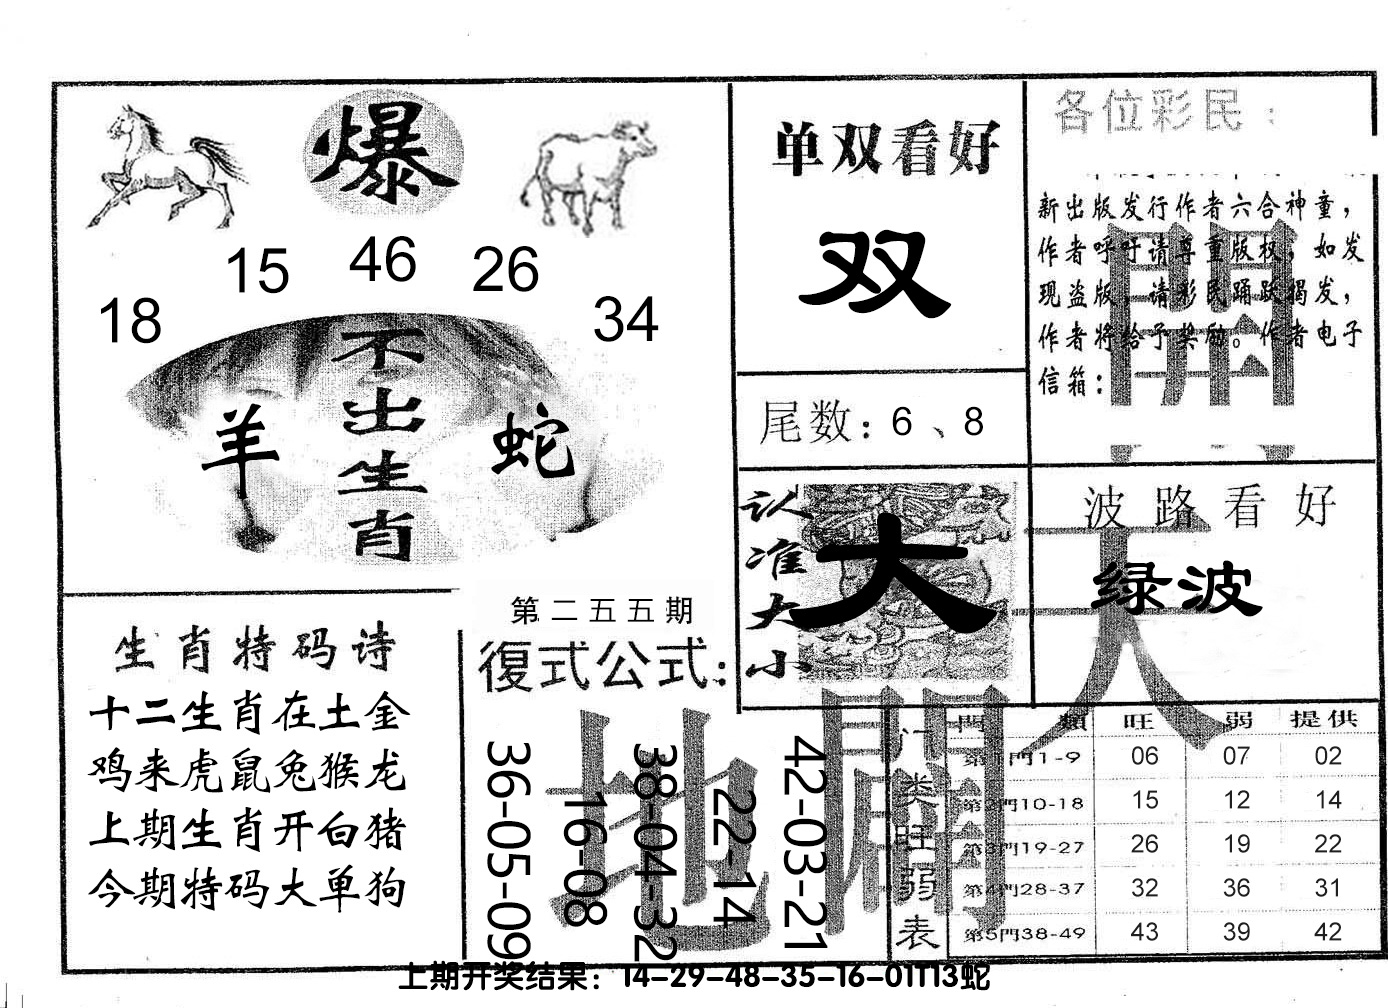 爆
18 15 46 26 34
不出生肖
羊 蛇
单双看好
双
尾数：6、8
各位彩民：
新出版发行作者六合神童，
作者呼吁请尊重版权，如发
现盗版，请彩民踊跃揭发，
作者将给予奖励。作者电子
信箱：
認准大小
大
波路看好
绿波
天
開
地
闢
生肖特码诗
十二生肖在土金
鸡来虎鼠兔猴龙
上期生肖开白猪
今期特码大单狗
第二五五期
復式公式：
36-05-09
16-08
38-04-32
22-14
42-03-21
门类旺弱表
門類 旺 弱 提供
第1門1-9 06 07 02
第2門10-18 15 12 14
第3門19-27 26 19 22
第4門28-37 32 36 31
第5門38-49 43 39 42
上期开奖结果：14-29-48-35-16-01T13蛇